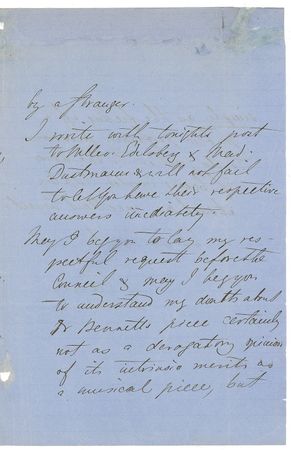 by a stranger.
I write with tonights post
to Mllev. Edelsberg & Mad.
Dustmann & will not fail
to let You have their respective
answers imediately.
May I beg you to lay my res-
pectful request before the
Council & may I beg you
to understand my doubts about
Dr Bennetts piece certainly
not as a derogatory opinion
of its intrinsic merits as
a musical piece, but